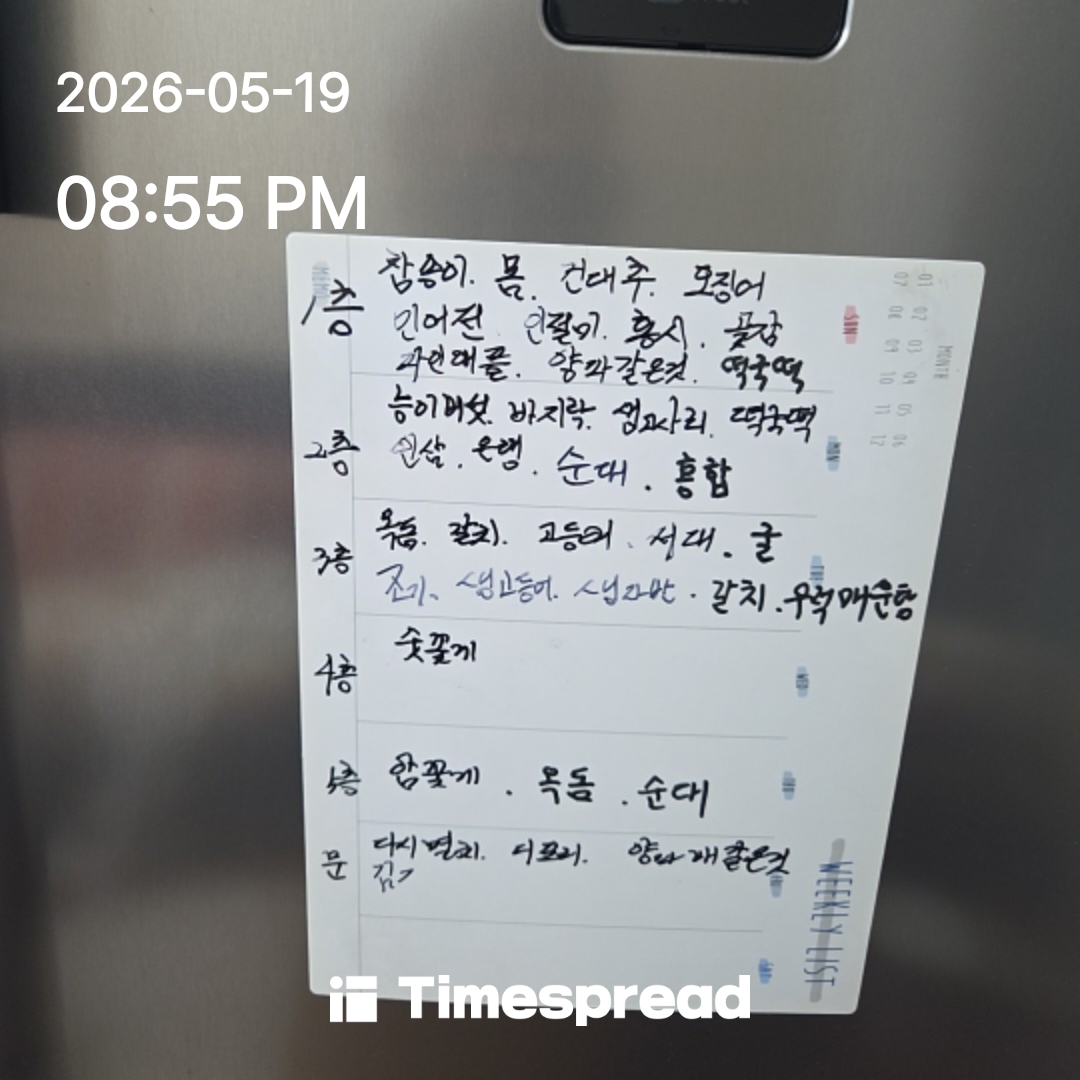 2026-05-19
08:55 PM
1층
참송이. 몸. 건대추. 오징어
민어전 인절미. 홍시. 곶감
파인애플. 양파같은것. 떡국떡
2층
능이버섯. 바지락. 생고사리. 떡국떡
인삼. 은행. 순대. 홍합
3층
옥돔. 갈치. 고등어. 서대. 굴
조기. 생고등어. 갈치. 우럭매운탕
4층
숫꽃게
5층
암꽃게. 옥돔. 순대
문
다시멸치. 디포리.
김
MEMO
SUN
MON
TUE
WED
MONTH
01 02 03 04 05 06
07 08 09 10 11 12
WEEKLY LIST
Timespread